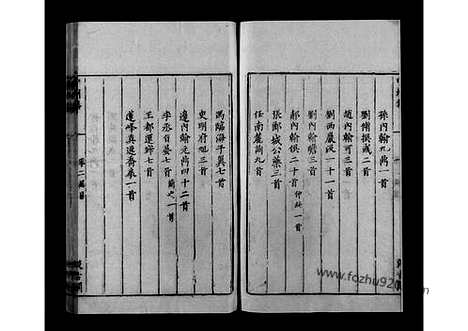 孫內翰九鼎一首
劉脩撰彧二首
趙內翰可三首
劉西嵓汲一十一首
劉內翰瞻三首
郝內翰俁二十首
張鄆城公藥三首
任南麓詢九首
馮臨海子翼七首
史明府旭三首
邊內翰元鼎四十二首
李承旨晏七首 簡之一首
王都運寂七首
蓮峰真逸喬扆一首
卷二總目
汲古閣
www.fozhu920.com